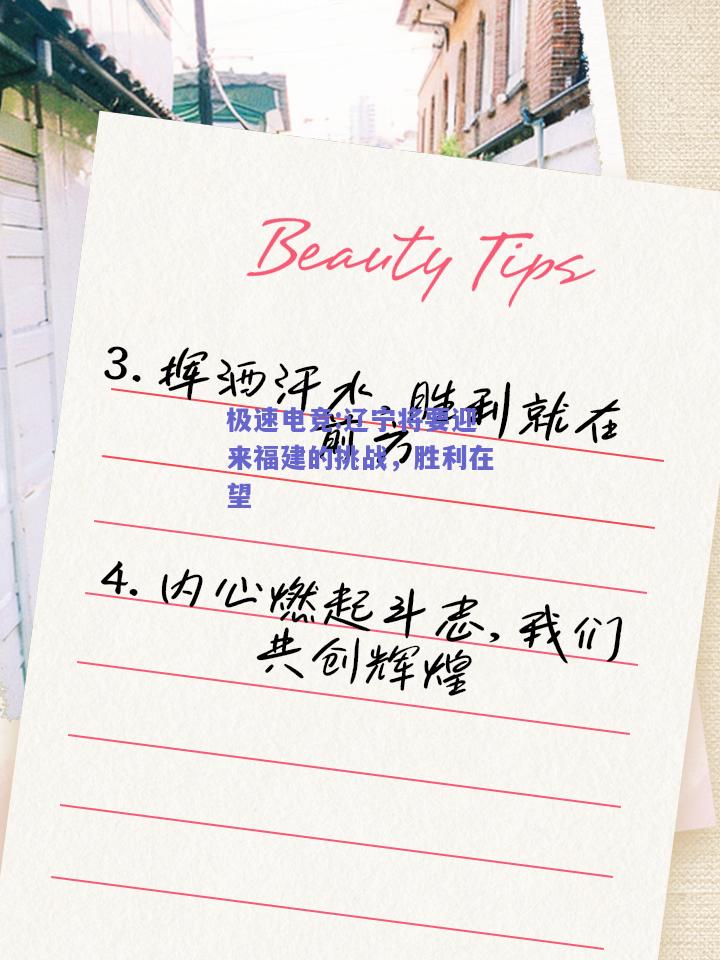 Beauty Tips
3. 挥洒汗水,胜利就在
前方
极速电竞:辽宁将要迎
来福建的挑战，胜利在
望
4. 内心燃起斗志,我们
共创辉煌